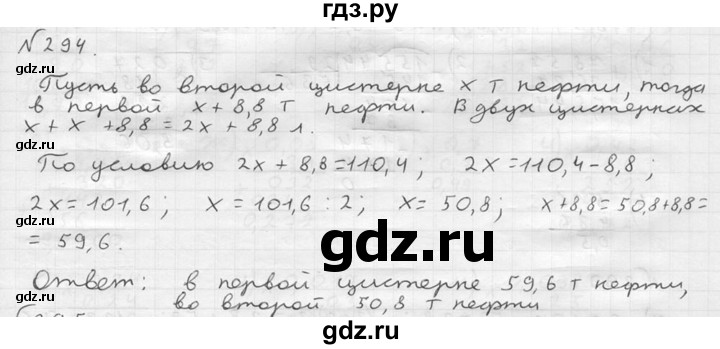 гдз.ру
№294.
Пусть во второй цистерне x т нефти, тогда
в первой x + 8,8 т нефти. В двух цистернах
x + x + 8,8 = 2x + 8,8 л.
По условию 2x + 8,8 = 110,4; 2x = 110,4 - 8,8;
2x = 101,6; x = 101,6 : 2; x = 50,8; x + 8,8 = 50,8 + 8,8 =
= 59,6.
Ответ: в первой цистерне 59,6 т нефти,
во второй 50,8 т нефти
gdz.ru
gdz.ru
gdz.ru
gdz.ru
gdz.ru
gdz.ru
gdz.ru
gdz.ru
gdz.ru
gdz.ru